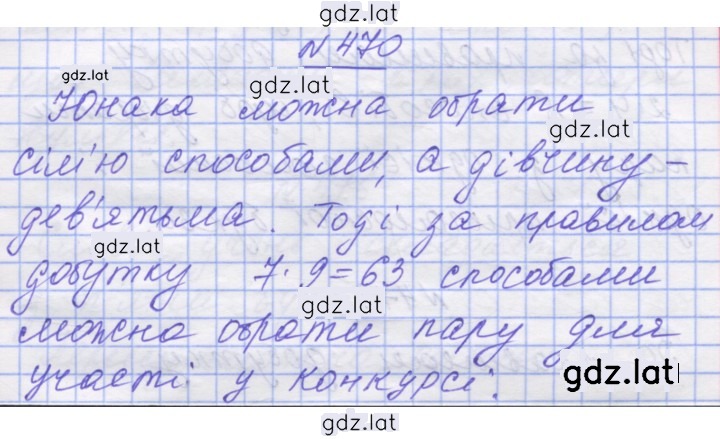 gdz.lat
N 470
gdz.lat
gdz.lat
Юнака можна обрати
gdz.lat
сім'ю способами, а дівчину -
дев'ятьма. Тоді за правилом
gdz.lat
добутку 7·9=63 способами
gdz.lat
можна обрати пару для
участі у конкурсі.
gdz.lat
gdz.lat